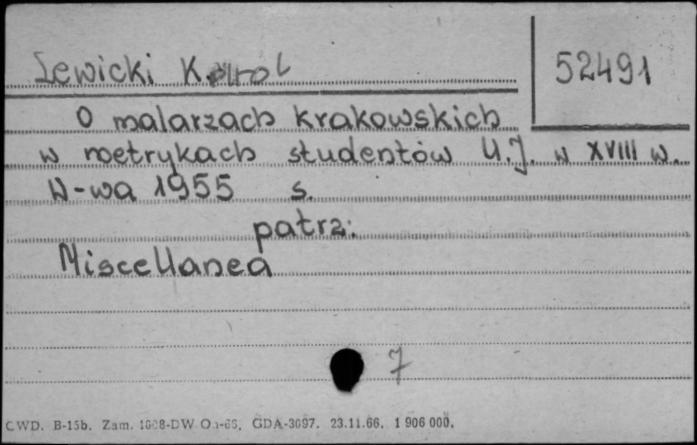 Lewicki Karol
52491
O malarzach krakowskich
w metrykach studentów U.J. w XVIII w.
W-wa 1955 s.
patrz:
Miscellanea
7
CWD. B-15b. Zam. GDA-3097. 23.11.66. 1 906 000.